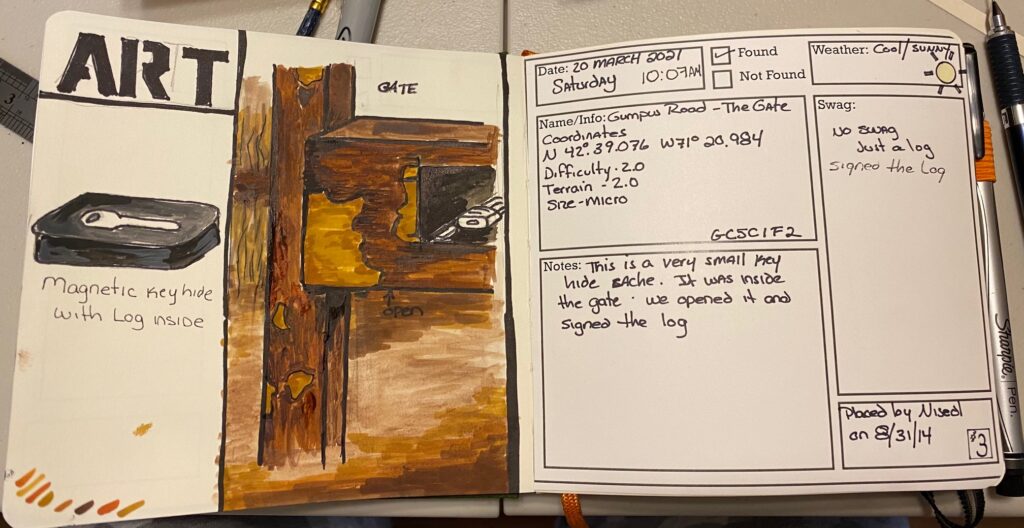 ART
GATE
Magnetic Key hide
with Log inside
open
Date: 20 MARCH 2021
Saturday 10:07AM
Found
Not Found
Weather: Cool/sunny
Name/Info: Gumpus Road - The Gate
Coordinates
N 42° 39.076 W71° 20.984
Difficulty - 2.0
Terrain - 2.0
Size - Micro
GC5C1F2
Swag:
No swag
Just a log
signed the Log
Notes: This is a very small key
hide cache. It was inside
the gate. We opened it and
signed the log
Placed by Nisedl
on 8/31/14
#3
Sharpie. Pen.
3